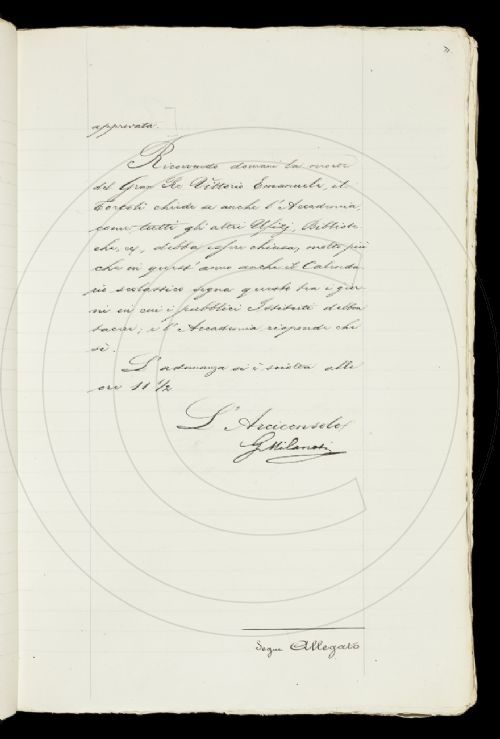 approvata.
Ricorrendo domani la morte
del Gran Re Vittorio Emanuele, il
Tortoli chiede se anche l'Accademia,
come tutti gli altri Ufizj, Bibliote
che, ec, debba esser chiusa, molto più
che in quest'anno anche il Calenda
rio scolastico segna questo tra i gior
ni in cui i pubblici Istituti debbon
tacere; e l'Accademia risponde che
sì.
L'adunanza si è sciolta alle
ore 11 1/2
L'Arciconsolo
G Milanesi
Segue Allegato